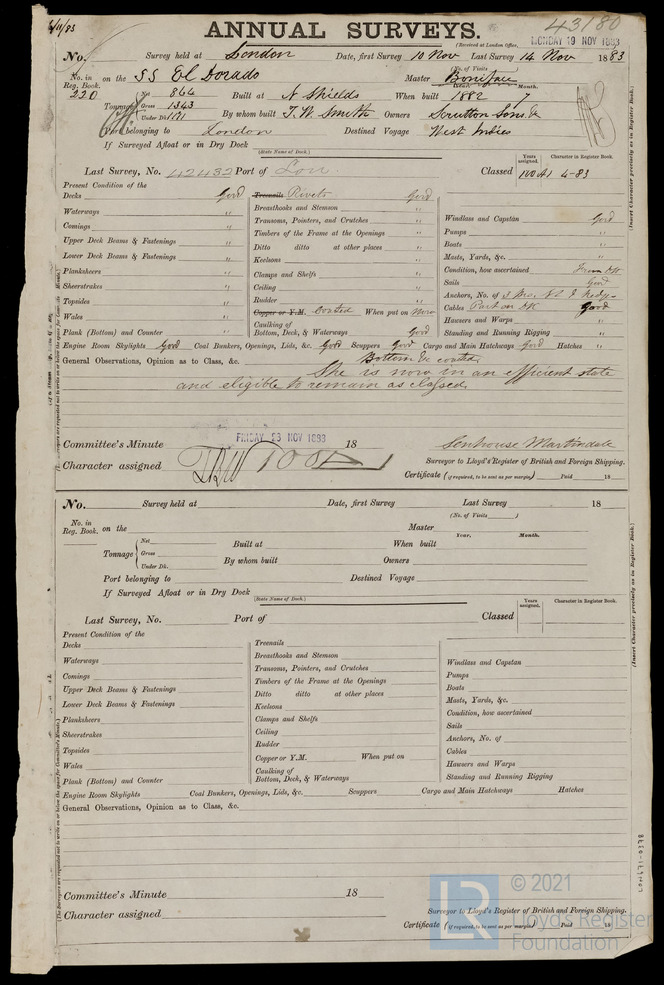 ANNUAL SURVEYS.
43180
(Received at London Office, MONDAY 19 NOV 1883
No. Survey held at London Date, first Survey 10 Nov Last Survey 14 Nov 1883
(No. of Visits
No. in Reg. Book. 220 on the SS El Dorado Master Boniface
Tonnage Net 864 Gross 1343 Under Dk. 1171 Built at N Shields When built Year. 1882 Month. 7
By whom built T. W. Smith Owners Scrutton Sons &
Port belonging to London Destined Voyage West Indies
If Surveyed Afloat or in Dry Dock
(State Name of Dock.)
Last Survey, No. 42432 Port of Lon Classed Years assigned. 100A1 Character in Register Book. 4-83
(Insert Character precisely as in Register Book.)
Present Condition of the
Decks Good
Waterways "
Comings "
Upper Deck Beams & Fastenings "
Lower Deck Beams & Fastenings "
Planksheers "
Sheerstrakes "
Topsides "
Wales "
Plank (Bottom) and Counter "
Treenails Rivets Good
Breasthooks and Stemson "
Transoms, Pointers, and Crutches "
Timbers of the Frame at the Openings "
Ditto ditto at other places "
Keelsons "
Clamps and Shelfs "
Ceiling "
Rudder "
Copper or Y.M. Coated When put on Now
Caulking of Bottom, Deck, & Waterways Good
Windlass and Capstan Good
Pumps "
Boats "
Masts, Yards, &c. "
Condition, how ascertained From DK
Sails Good
Anchors, No. of
Cables Part on DK Good
Hawsers and Warps "
Standing and Running Rigging "
Engine Room Skylights Good Coal Bunkers, Openings, Lids, &c. Good Scuppers Good Cargo and Main Hatchways Good Hatches "
General Observations, Opinion as to Class, &c. Bottom &c coated.
She is now in an efficient state
and eligible to remain as classed
Committee's Minute FRIDAY 23 NOV 1883 18
Character assigned 100A1
Senhouse Martindale
Surveyor to Lloyd's Register of British and Foreign Shipping.
Certificate (if required, to be sent as per margin) Paid 18
No. Survey held at Date, first Survey Last Survey 18
(No. of Visits )
No. in Reg. Book. on the Master
Tonnage Net Gross Under Dk. Built at When built Year. Month.
By whom built Owners
Port belonging to Destined Voyage
If Surveyed Afloat or in Dry Dock
(State Name of Dock.)
Last Survey, No. Port of Classed Years assigned. Character in Register Book.
(Insert Character precisely as in Register Book.)
Present Condition of the
Decks
Waterways
Comings
Upper Deck Beams & Fastenings
Lower Deck Beams & Fastenings
Planksheers
Sheerstrakes
Topsides
Wales
Plank (Bottom) and Counter
Treenails
Breasthooks and Stemson
Transoms, Pointers, and Crutches
Timbers of the Frame at the Openings
Ditto ditto at other places
Keelsons
Clamps and Shelfs
Ceiling
Rudder
Copper or Y.M. When put on
Caulking of Bottom, Deck, & Waterways
Windlass and Capstan
Pumps
Boats
Masts, Yards, &c.
Condition, how ascertained
Sails
Anchors, No. of
Cables
Hawsers and Warps
Standing and Running Rigging
Engine Room Skylights Coal Bunkers, Openings, Lids, &c. Scuppers Cargo and Main Hatchways Hatches
General Observations, Opinion as to Class, &c.
Committee's Minute 18
Character assigned
Surveyor to Lloyd's Register of British and Foreign Shipping.
Certificate (if required, to be sent as per margin) Paid 18
© 2021
LR Lloyd's Register
Foundation